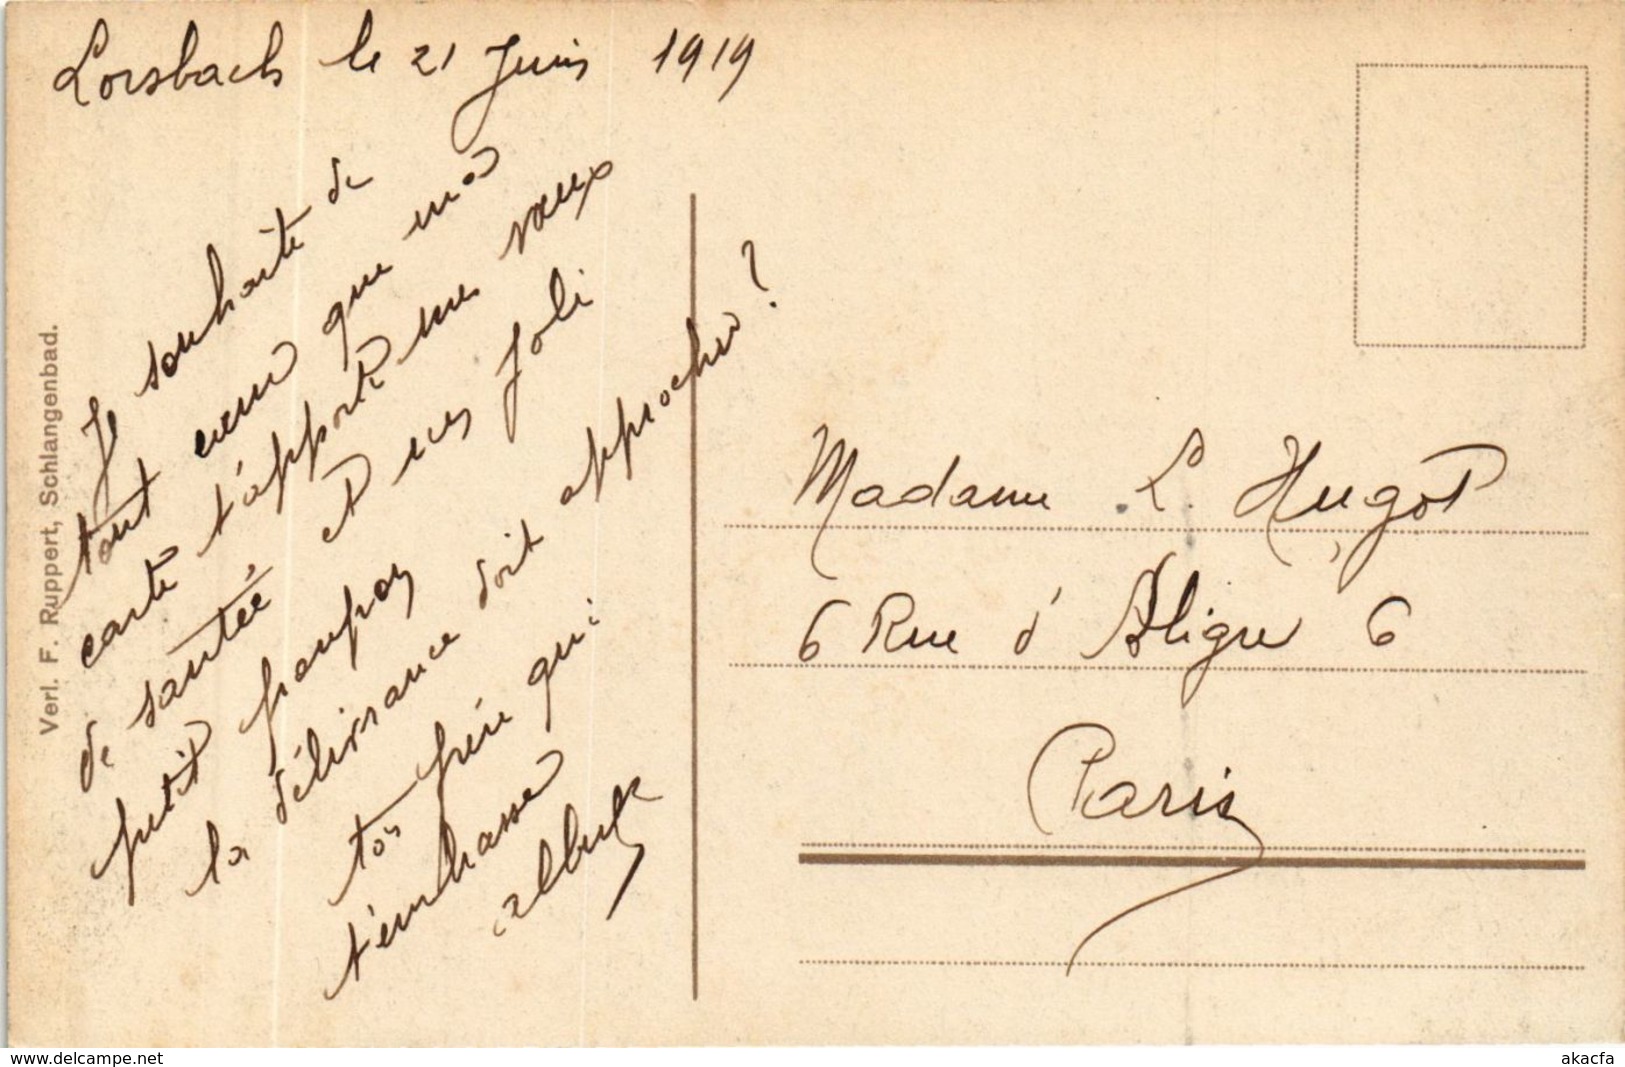 Lorsbach le 21 Juin 1919
Je souhaite de
tout cœur que ma
carte t'apporte mes vœux
de santée, et un joli
petit poupon
la délivrance soit approche ?
ton frère qui
t'embrasse
albert
Madame L. Hugot
6 Rue d'Aligre 6
Paris
Verl. F. Ruppert, Schlangenbad.
www.delcampe.net
akacfa